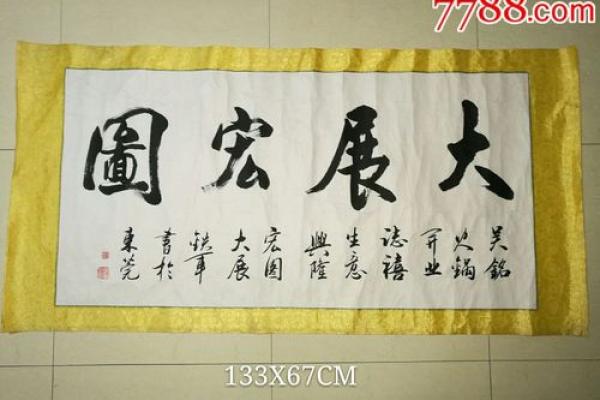 7788.com
大展宏圖
吴銘
火鍋
开业
誌禧
生意
興隆
宏图
大展
書於
東莞
133X67CM